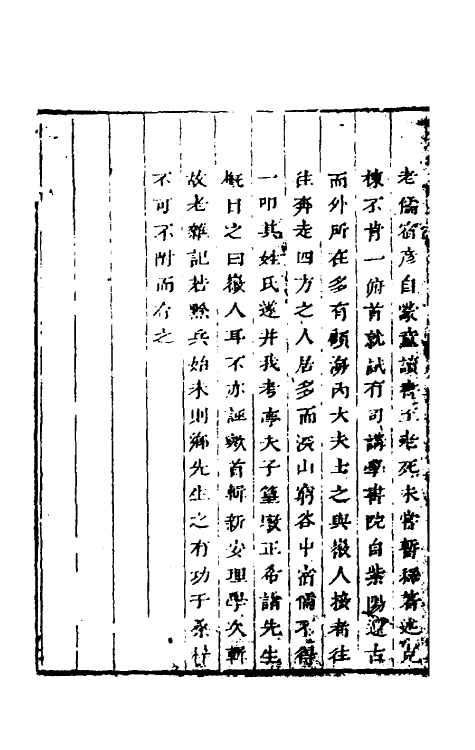 老儒宿彥自蒙童讀書至老死未嘗暫稱著述充
棟不肯一俯首就試有司講學書院自紫陽迄古
而外所在多有顧海內大夫士之與徽人接者往
往奔走四方之人居多而深山窮谷中宿儒不得
一叩其姓氏遂并我考亭夫子篁墩正希諸先生
概目之曰徽人耳不亦誣歟首輯新安理學次輯
故老雜記若縣兵始末則鄉先生之有功于桑梓
不可不附而存之